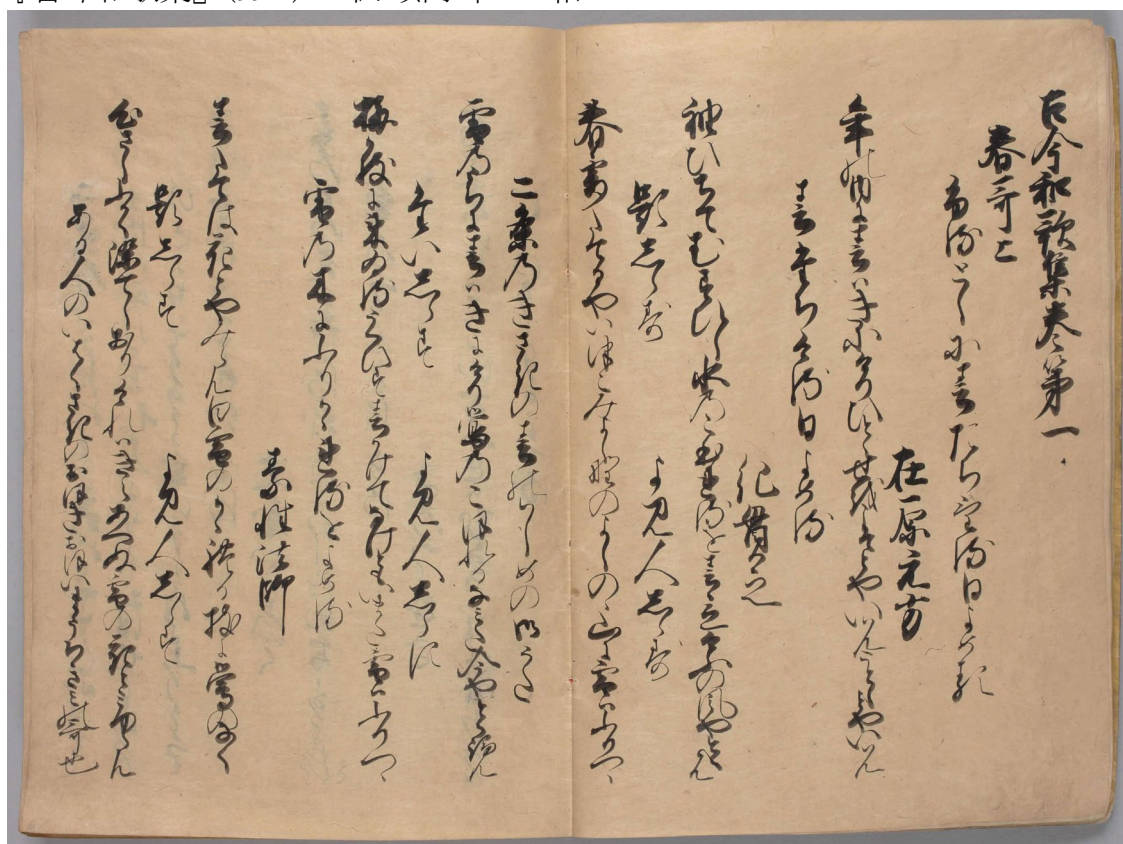 古今和歌集巻第一
春哥上
ふるとしに春たちける日よめる
在原元方
年の内に春はきにけりひとゝせをこそとやいはんことしとやいはん
春たちける日よめる
紀貫之
袖ひちてむすひし水のこほれるを春立けふの風やとくらん
題しらす　よみ人しらす
春霞たてるやいつこみよしのゝよしのゝ山に雪はふりつゝ
二条のきさきの春のはしめの御うた
雪のうちに春はきにけり鶯のこほれるなみた今やとくらん
たいしらす　よみ人しらす
梅かえに来ゐるうくひす春かけてなけともいまた雪はふりつゝ
雪の木にふりかゝれるをよめる
素性法師
春たては花とやみらん白雪のかゝれる枝に鶯のなく
題しらす　よみ人しらす
心さしふかく染てしおりけれはきえあへぬ雪の花とみゆらん
ある人のいはくさきのおほきおほいまうちきみの哥也